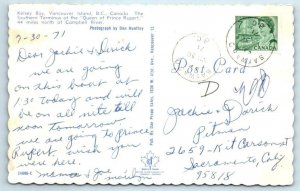 Kelsey Bay, Vancouver Island, B.C., Canada. The
Southern Terminal of the "Queen of Prince Rupert"
44 miles north of Campbell River.
Photograph by Dan Huntley
7-30-71
Dear Jackie & Derick
we are going
on this boat at
1:30 today and will
be on all nite till
noon tomorrow
we are going to Prince
Rupert wish you
were here.
mama & Joe
Post Card
CANADA
Jackie & Derick
Pitman
2659-Kit Carson St
Sacramento, Caly
95818